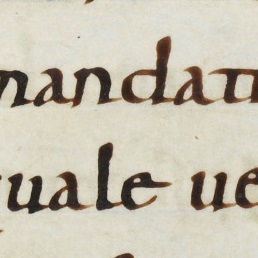 mandatu
uale ue